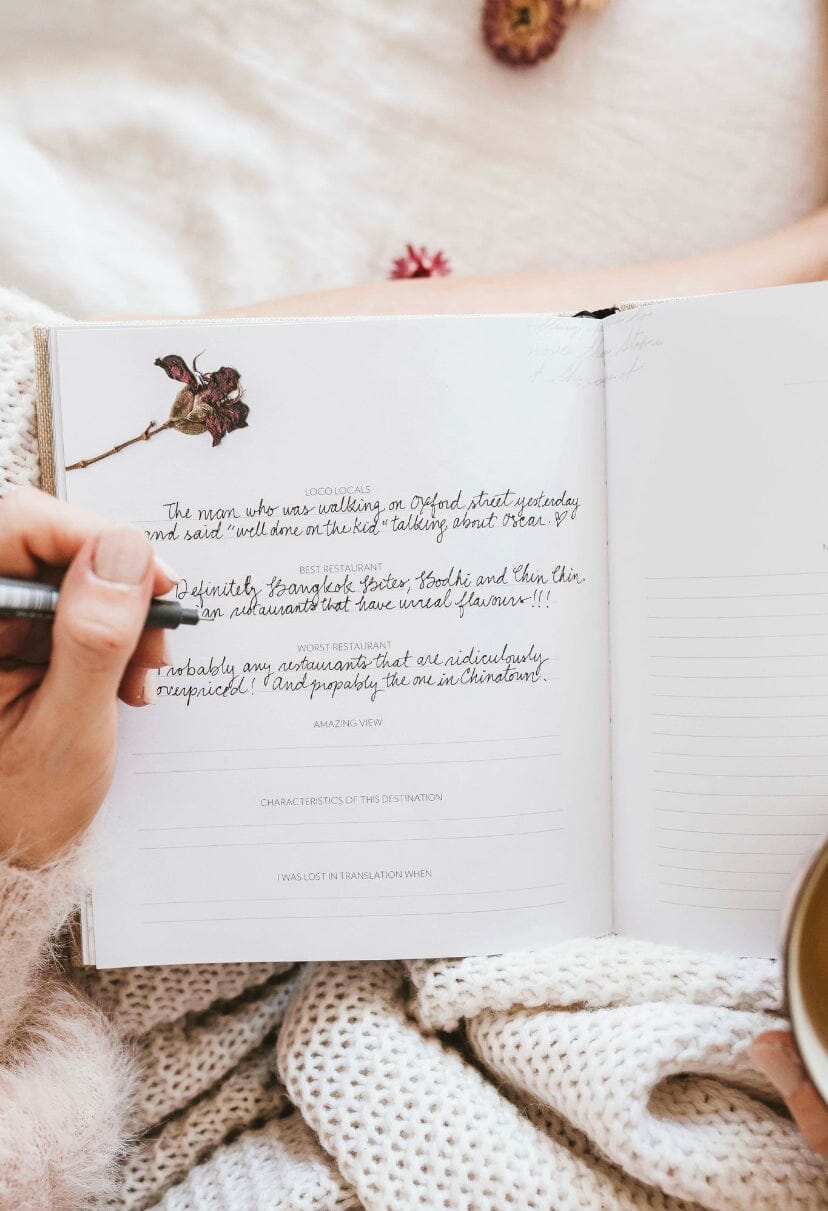 LOCO LOCALS
The man who was walking on Oxford street yesterday
and said "well done on the kid" talking about Oscar. ♡
BEST RESTAURANT
Definitely Bangkok Bites, Bodhi and Chin Chin.
restaurants that have unreal flavours!!!
WORST RESTAURANT
Probably any restaurants that are ridiculously
overpriced! And propably the one in Chinatown.
AMAZING VIEW
CHARACTERISTICS OF THIS DESTINATION
I WAS LOST IN TRANSLATION WHEN